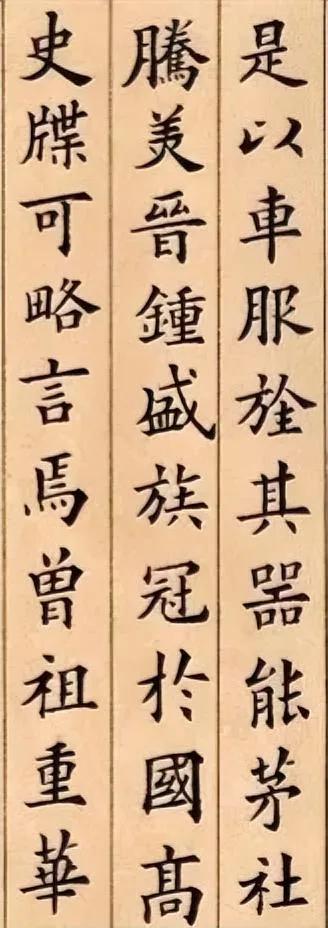 是以車服旌其器能茅社
騰美晉鍾盛族冠於國高
史牒可略言焉曾祖重華